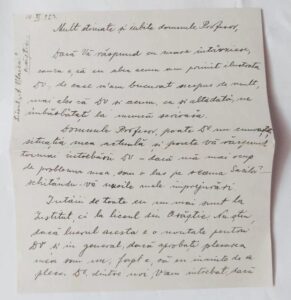 Mult stimate și iubite domnule Profesor,
Dacă Vă răspund cu mare întârziere,
cauza e, că eu abia acum am primit
Dv, de care m'am bucurat
mai ales că Dv și acum, ca și altădată, ne
îmbărbătați la muncă serioasă.
Domnule Profesor, poate Dv nu cunoașteți
situația mea actuală și poate Vă răspund
tocmai întrebării Dv - dacă mă mai ocup
de problema mea, sau o las pe seama
schițându-vă nouile mele împrejurări
Întâi de toate eu nu mai sunt la
Institut, ci la liceul din Orăștie. Nu știu,
dacă lucrul acesta e o noutate pentru
Dv și în general, dacă aprobați plecarea
mea sau nu, fapt e, că eu înainte de a
pleca Dv. dintre noi, V'am întrebat, dacă